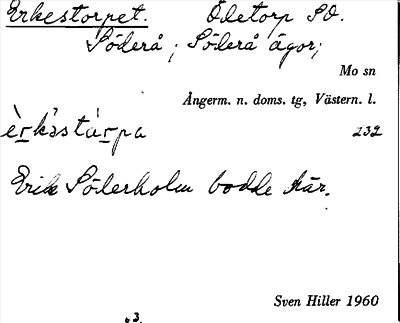 Erkestorpet. Ödetorp SO.
Söderå ; Söderå ägor;
Mo sn
Ångerm. n. doms. tg, Västern. l.
èrkəstárpa 232
Erik Söderholm bodde här.
Sven Hiller 1960
3